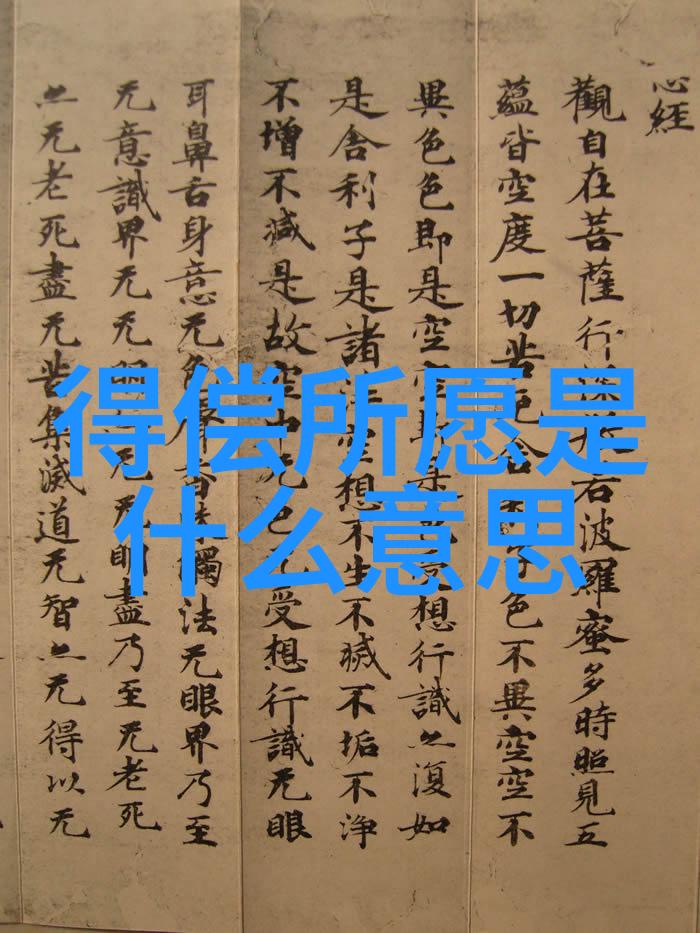 心經
觀自在菩薩行深般若波羅蜜多時照見五
蘊皆空度一切苦厄舍利子色不異空空不
異色色即是空空即是色受想行識亦復如
是舍利子是諸法空想不生不滅不垢不淨
不增不減是故空中无色无受想行識无眼
耳鼻舌身意无色聲香味觸法无眼界乃至
无意識界无无明亦无无明盡乃至无老死
亦无老死盡无苦集滅道无智亦无得以无
得偿所愿是
什么意思